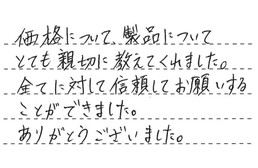 価格について、製品について
とても親切に教えてくれました。
全てに対して信頼してお願いする
ことができました。
ありがとうございました。